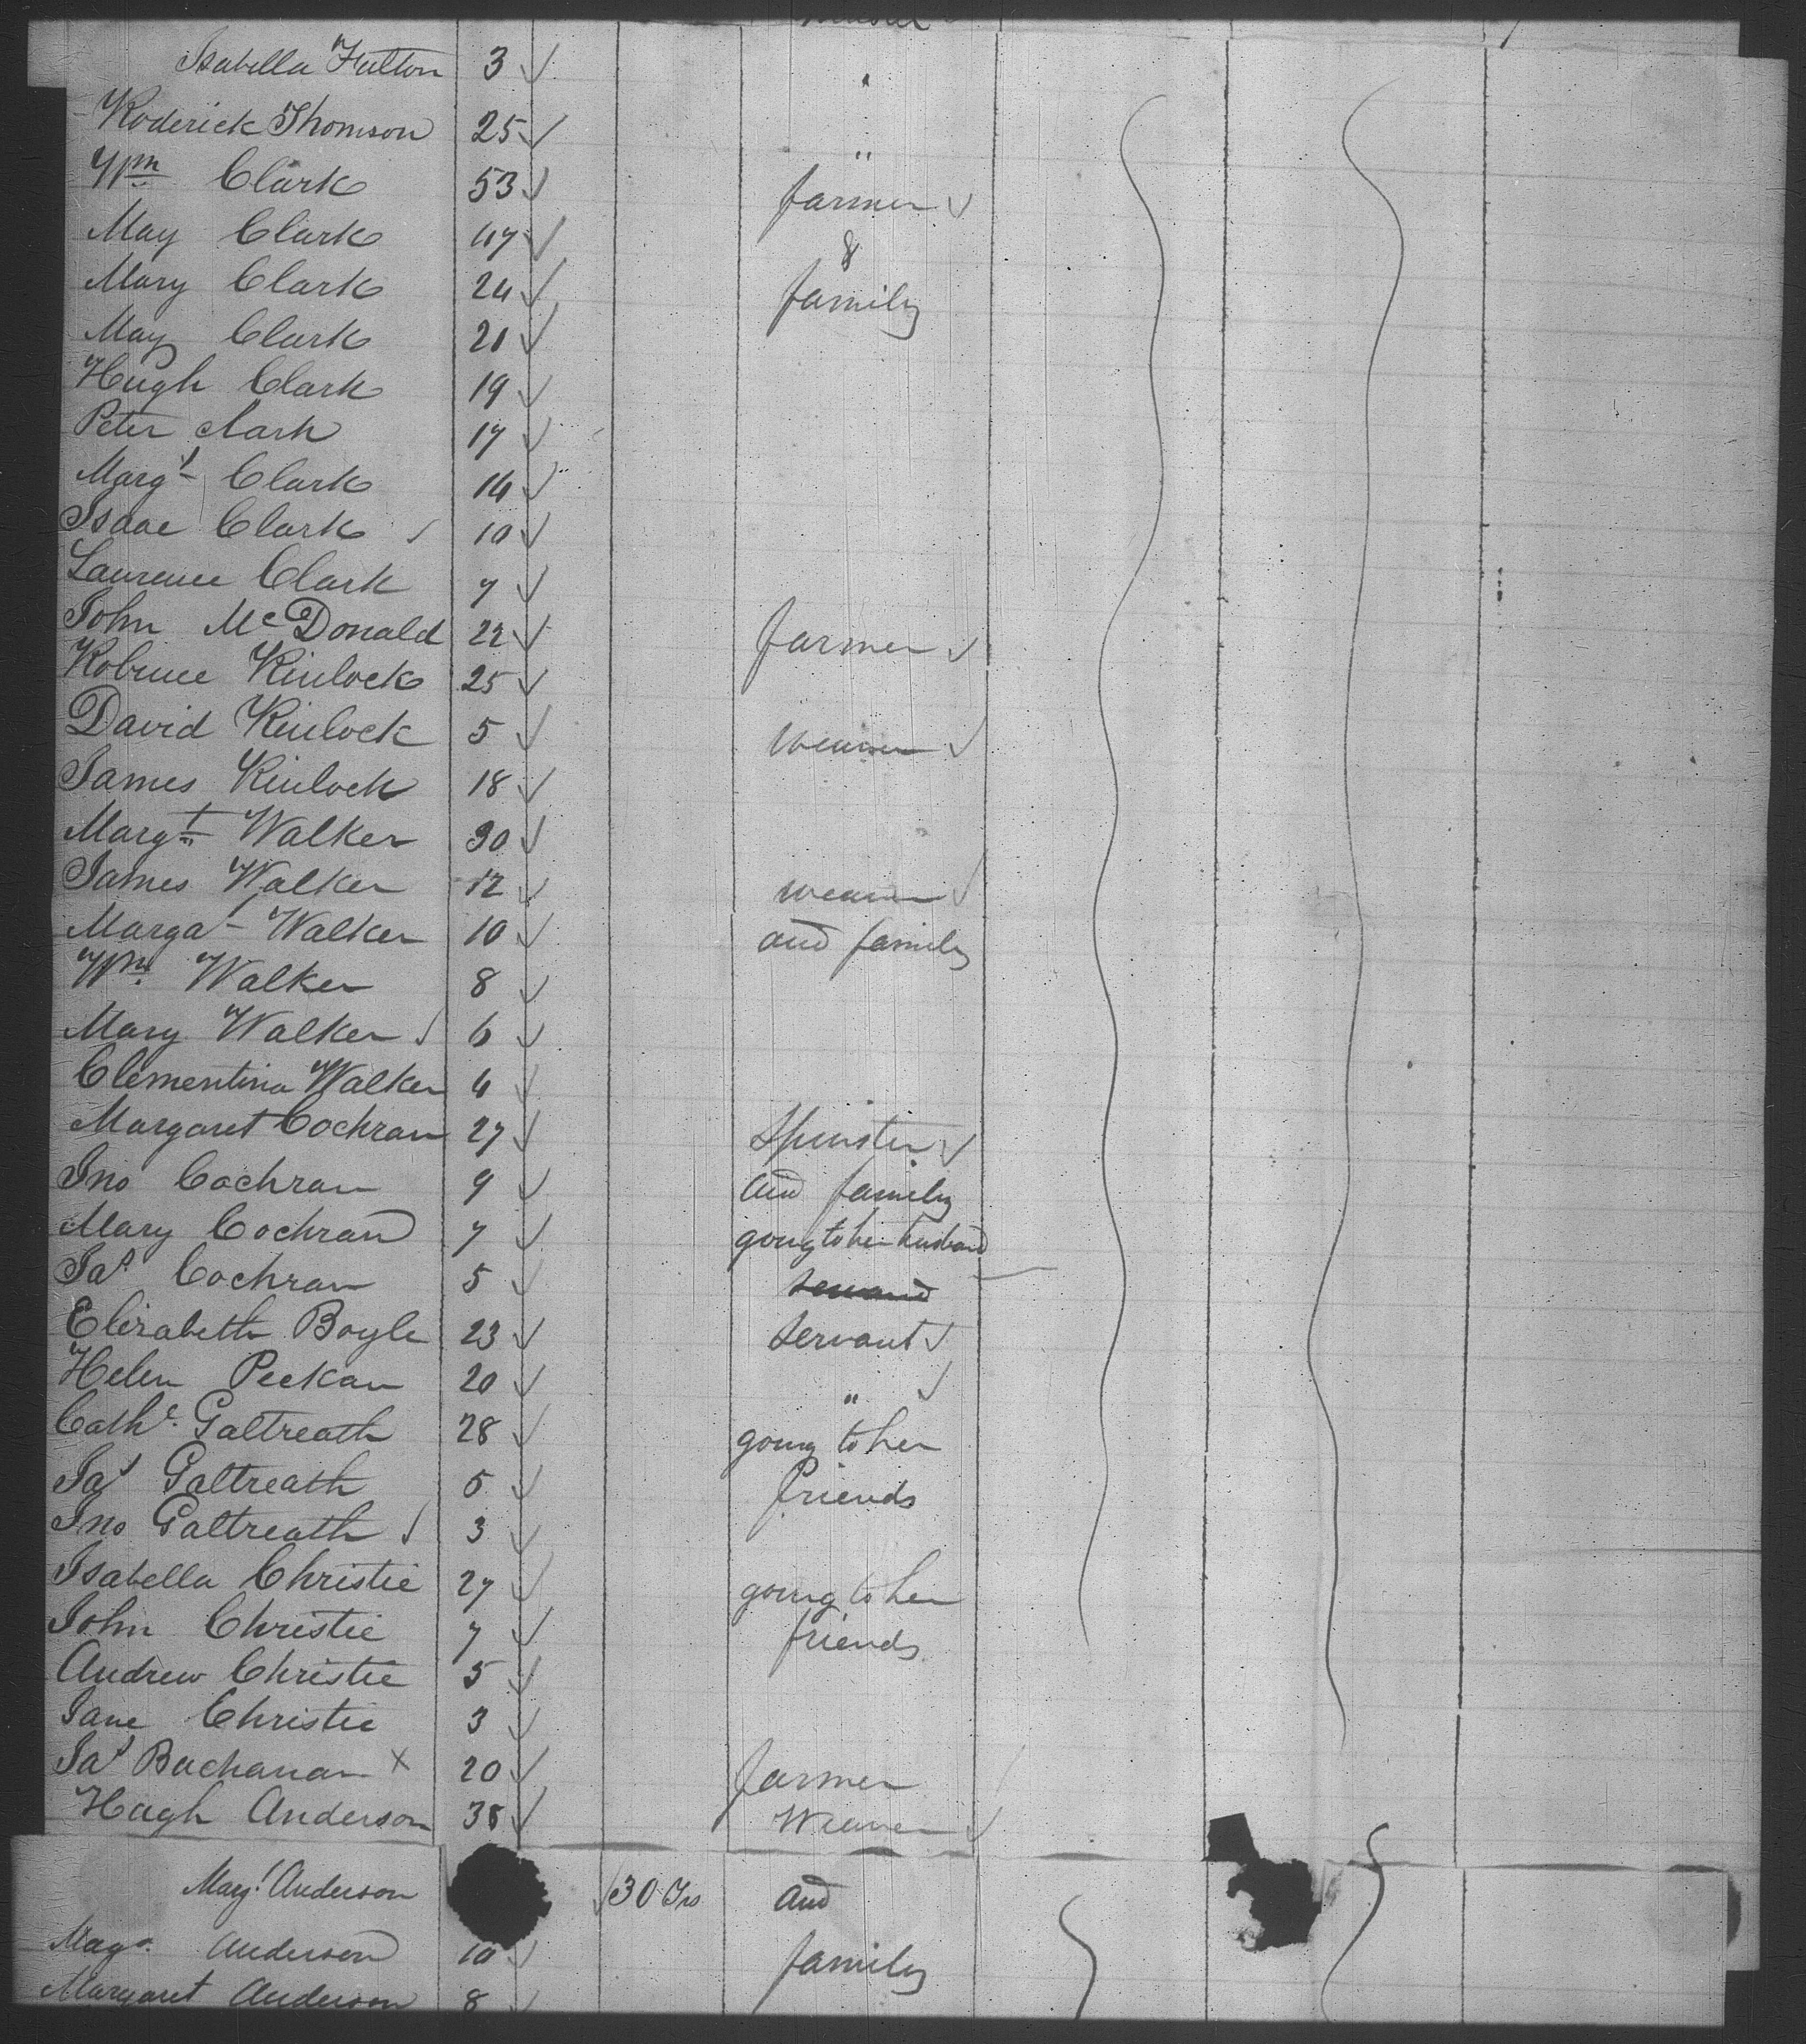 Isabella Fulton 3 "
Roderick Thomson 25 "
Wm Clark 53 farmer
May Clark 47 &
Mary Clark 24 family
May Clark 21
Hugh Clark 19
Peter Clark 17
Margt Clark 14
Isaac Clark 10
Laurence Clark 7
John McDonald 22 farmer
Kinlock 25
David Kinlock 5 weaver
James Kinlock 18
Margt Walker 30
James Walker 12 weaver
Margat Walker 10 and family
Wm Walker 8
Mary Walker 6
Clementina Walker 4
Margaret Cochran 27 Spinster
Jno Cochran 9 and family
Mary Cochran 7 going to her husband
Jas Cochran 5
Elizabeth Boyle 23 Servant
Helen Peekan 20 "
Cathe Galtreath 28 going to her
Jas Galtreath 5 friends
Jno Galtreath 3
Isabella Christie 27 going to her
John Christie 7 friends
Andrew Christie 5
Jane Christie 3
Jas Buchanan x 20 farmer
Hugh Anderson 38 Weaver
Margt Anderson 30 Yrs and
Magr Anderson 10 family
Margaret Anderson 8